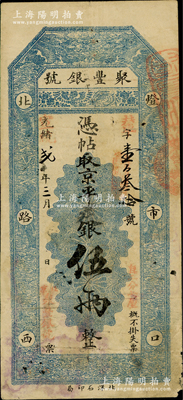 上海陽明拍賣
號銀豐聚
燈市口
北路西
字第壹百叁拾號
憑帖取京平
銀伍兩整
光緒 年三月 日
概不掛失票
票
北洋石印局